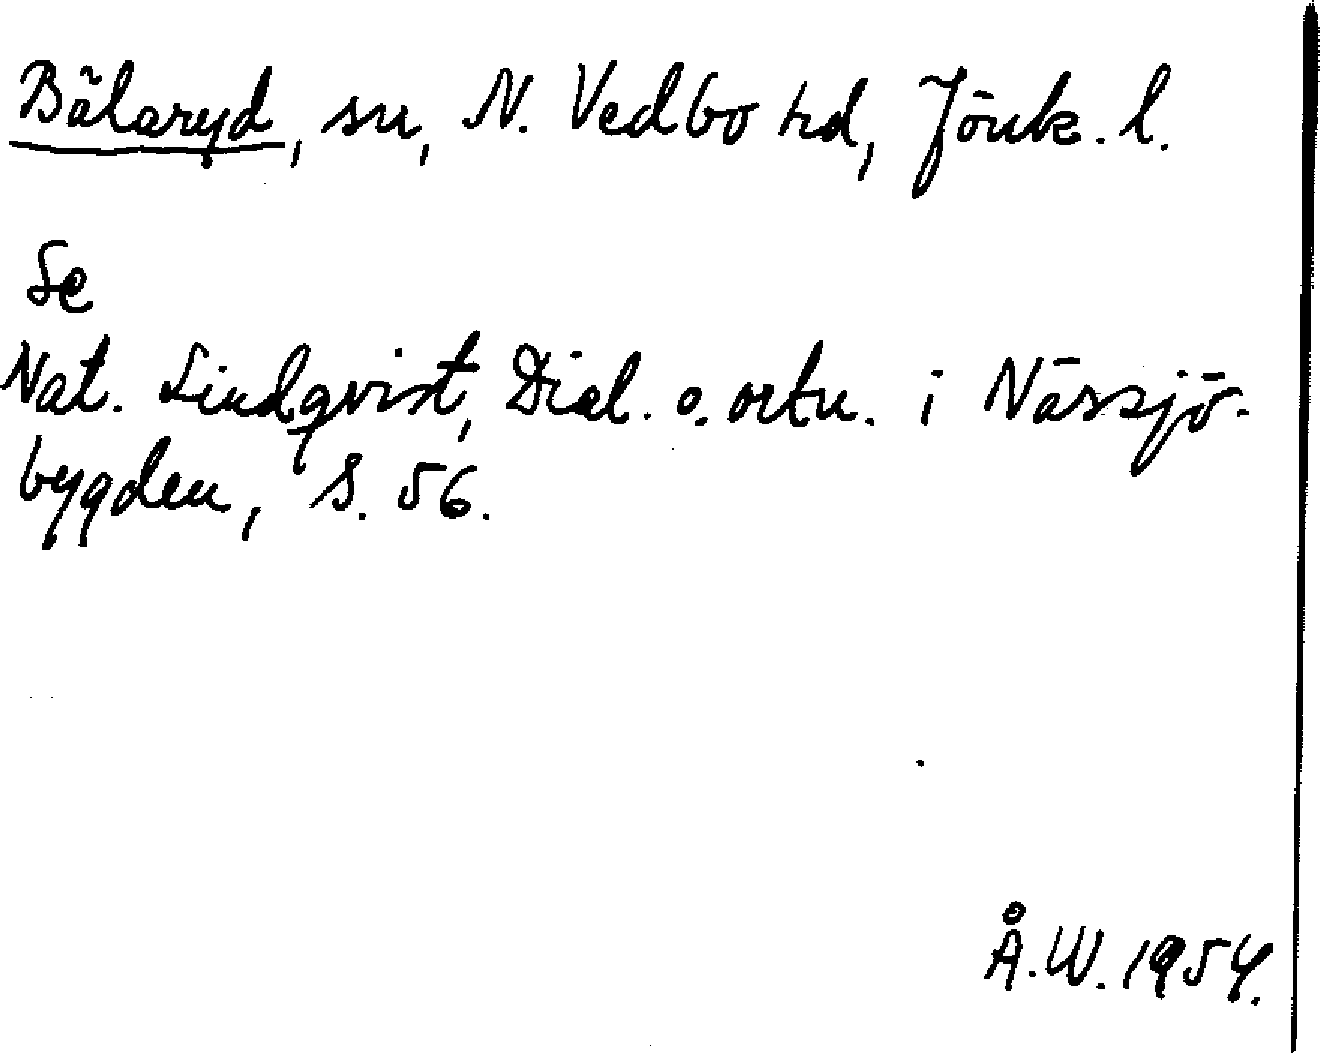 Bälaryd, sn, N. Vedbo hd, Jönk. l.
Se
Nat. Lindqvist, Dial. o. ortn. i Nässjö-
bygden, s. 56.
Å.W. 1954.